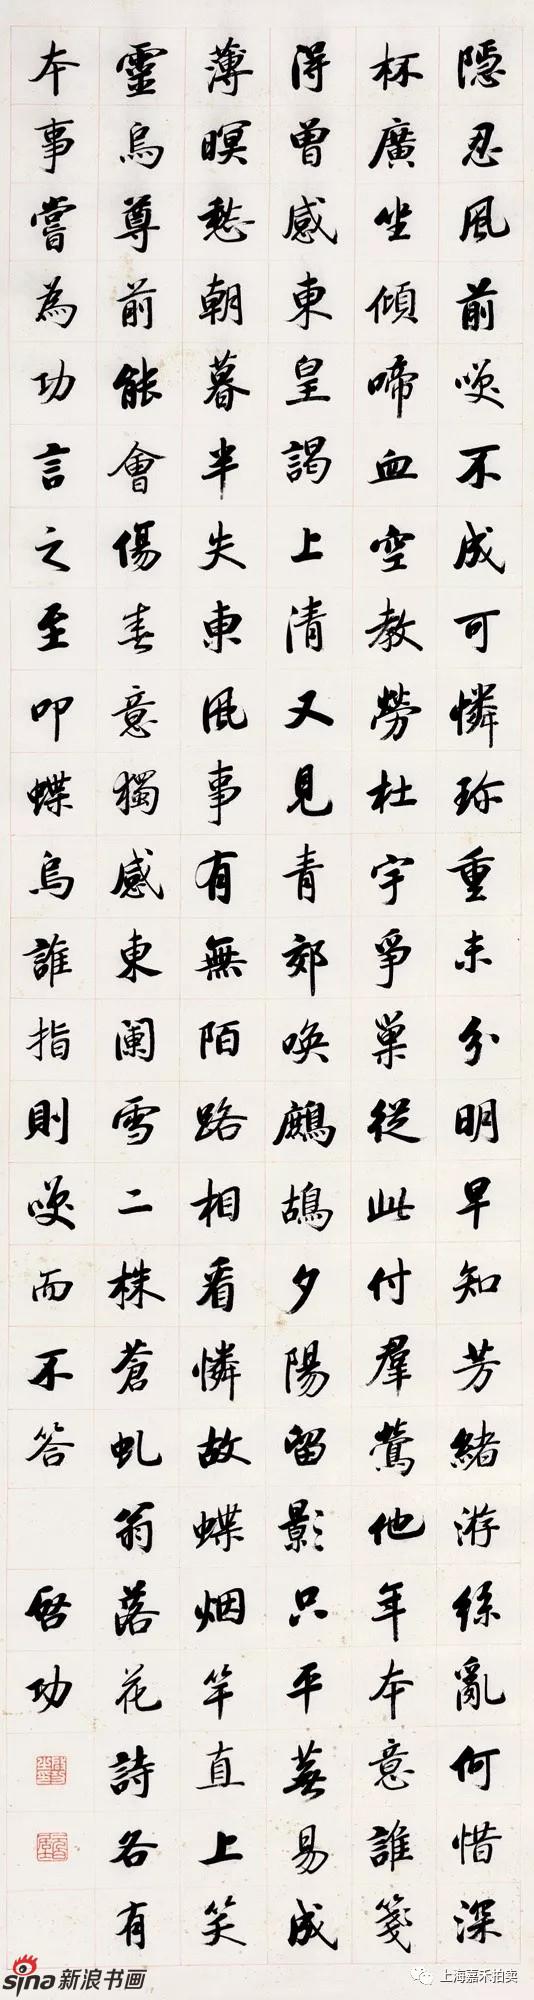 隱忍風前笑不成可憐珍重未分明早知芳緒游絲亂何惜深
杯廣坐傾啼血空教勞杜宇爭巢從此付羣鶯他年本意誰箋
得曾感東皇謁上清又見青郊喚鷓鴣夕陽留影只平蕪易成
薄暝愁朝暮半失東風事有無陌路相看憐故蝶烟竿直上笑
靈烏尊前能會傷春意獨感東闌雪二株蒼虬翁落花詩各有
本事嘗為功言之至叩蝶烏誰指則笑而不答
啓功
sina新浪书画
上海嘉禾拍卖